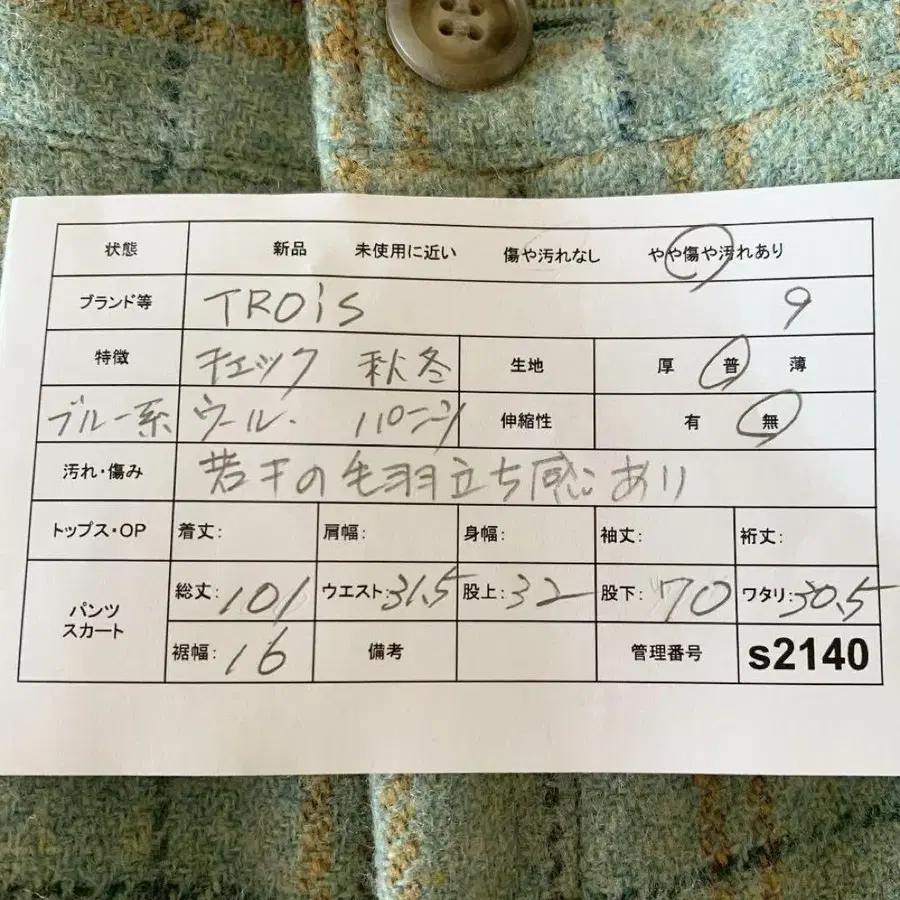 状態 新品 未使用に近い 傷や汚れなし やや傷や汚れあり
ブランド等 TROiS 9
特徴 チェック 秋冬 生地 厚 普 薄
ブルー系 ウール. パンツ 伸縮性 有 無
汚れ・傷み 若干の毛羽立ち感あり
トップス・OP 着丈: 肩幅: 身幅: 袖丈: 裄丈:
パンツ スカート 総丈: 101 ウエスト: 31.5 股上: 32 股下: 70 ワタリ: 30.5
裾幅: 16 備考 管理番号 s2140